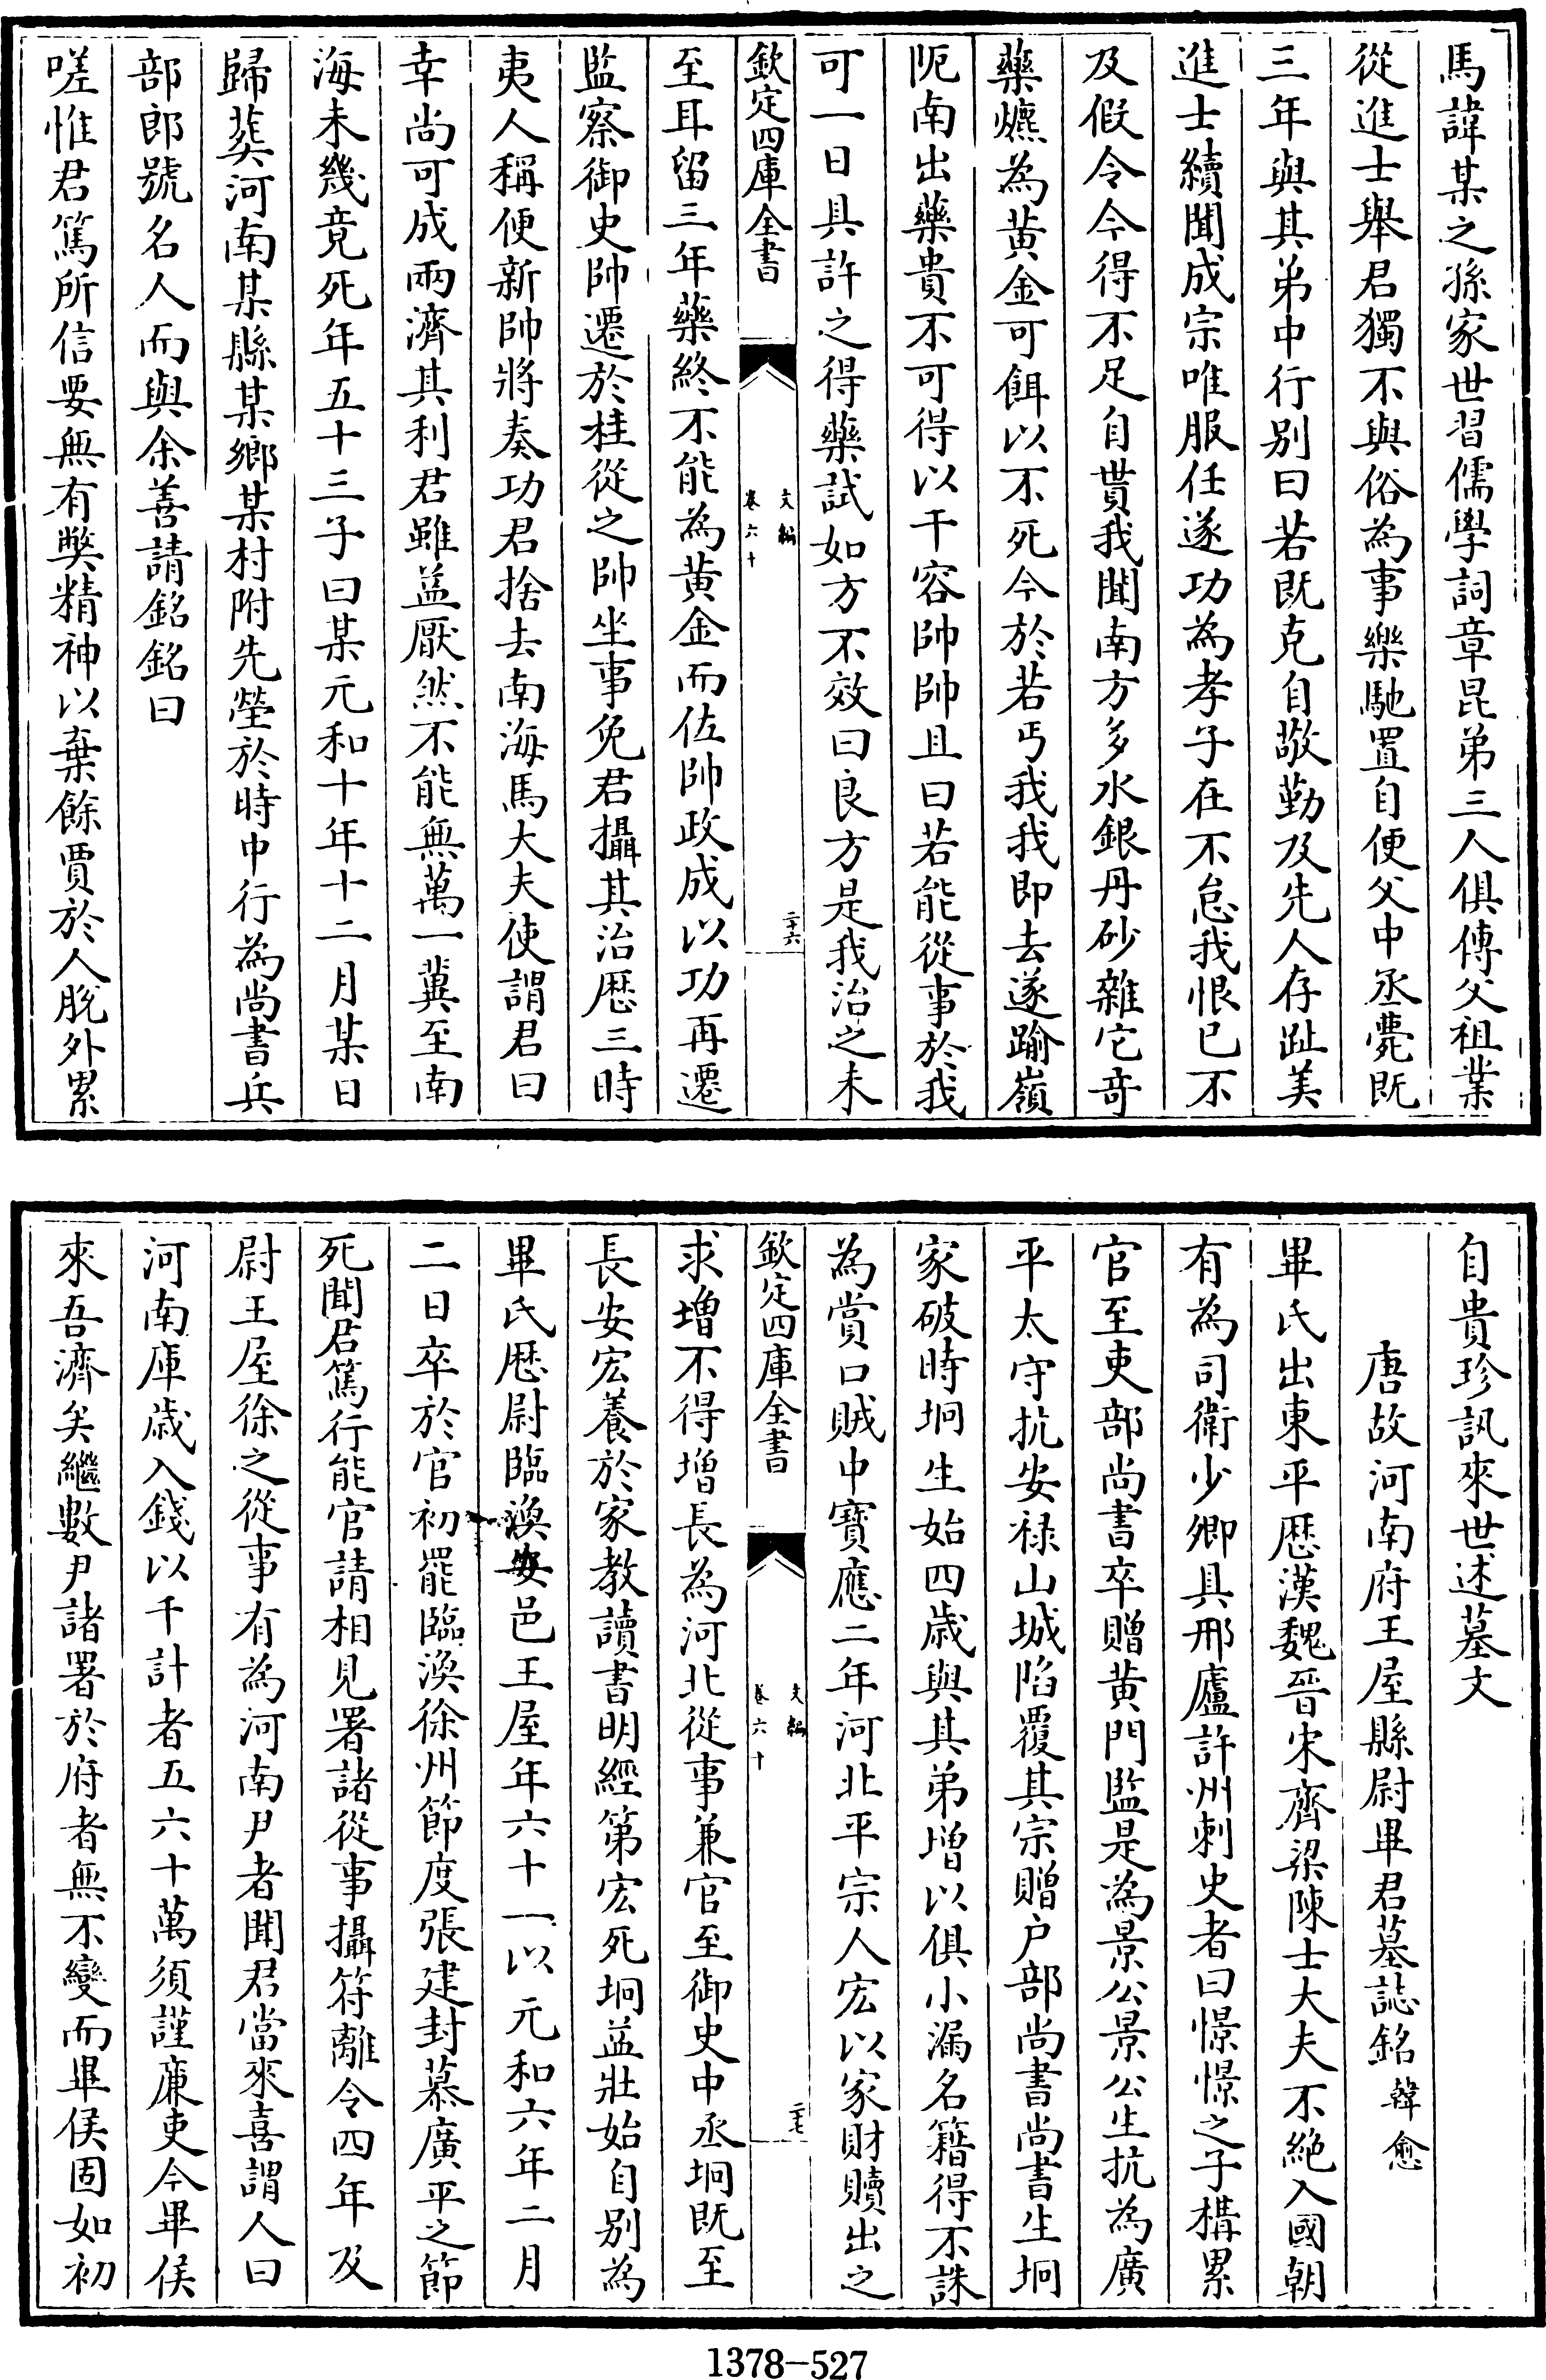 馬諱某之孫家世習儒學詞章昆弟三人俱傳父祖業
從進士舉君獨不與俗為事樂馳置自便父中丞薨既
三年與其弟中行别曰若既克自敬勤及先人存趾美
進士續聞成宗唯服任遂功為孝子在不怠我恨已不
及假令今得不足自貰我聞南方多水銀丹砂雜它竒
藥爊為黄金可餌以不死今於若丐我我即去遂踰嶺
阨南出藥貴不可得以干容帥帥且曰若能從事於我
可一日具許之得藥試如方不效曰良方是我治之未
欽定四庫全書
文編
卷六十
二十六
至耳留三年藥終不能為黄金而佐帥政成以功再遷
監察御史帥遷於桂從之帥坐事免君攝其治歴三時
夷人稱便新帥將奏功君捨去南海馬大夫使謂君曰
幸尚可成兩濟其利君雖益厭然不能無萬一冀至南
海未幾竟死年五十三子曰某元和十年十二月某日
歸葬河南某縣某鄉某村附先塋於時中行為尚書兵
部郎號名人而與余善請銘銘曰
嗟惟君篤所信要無有弊精神以棄餘賈於人脫外累
自貴珍訊來世述墓文
唐故河南府王屋縣尉畢君墓誌銘 韓愈
畢氏出東平歴漢魏晉宋齊梁陳士大夫不絶入國朝
有為司衛少卿具邢廬許州刺史者曰憬憬之子構累
官至吏部尚書卒贈黄門監是為景公景公生抗為廣
平太守抗安禄山城陷覆其宗贈户部尚書尚書生坰
家破時坰生始四歳與其弟增以俱小漏名籍得不誅
為賞口賊中寶應二年河北平宗人宏以家財贖出之
欽定四庫全書
文編
卷六十
二十七
求增不得增長為河北從事兼官至御史中丞坰既至
長安宏養於家教讀書明經第宏死坰益壯始自别為
畢氏歴尉臨渙安邑王屋年六十一以元和六年二月
二日卒於官初罷臨渙徐州節度張建封慕廣平之節
死聞君篤行能官請相見署諸從事攝符離令四年及
尉王屋徐之從事有為河南尹者聞君當來喜謂人曰
河南庫歳入錢以千計者五六十萬須謹廉吏今畢侯
來吾濟矣繼數尹諸署於府者無不變而畢侯固如初
1378-527